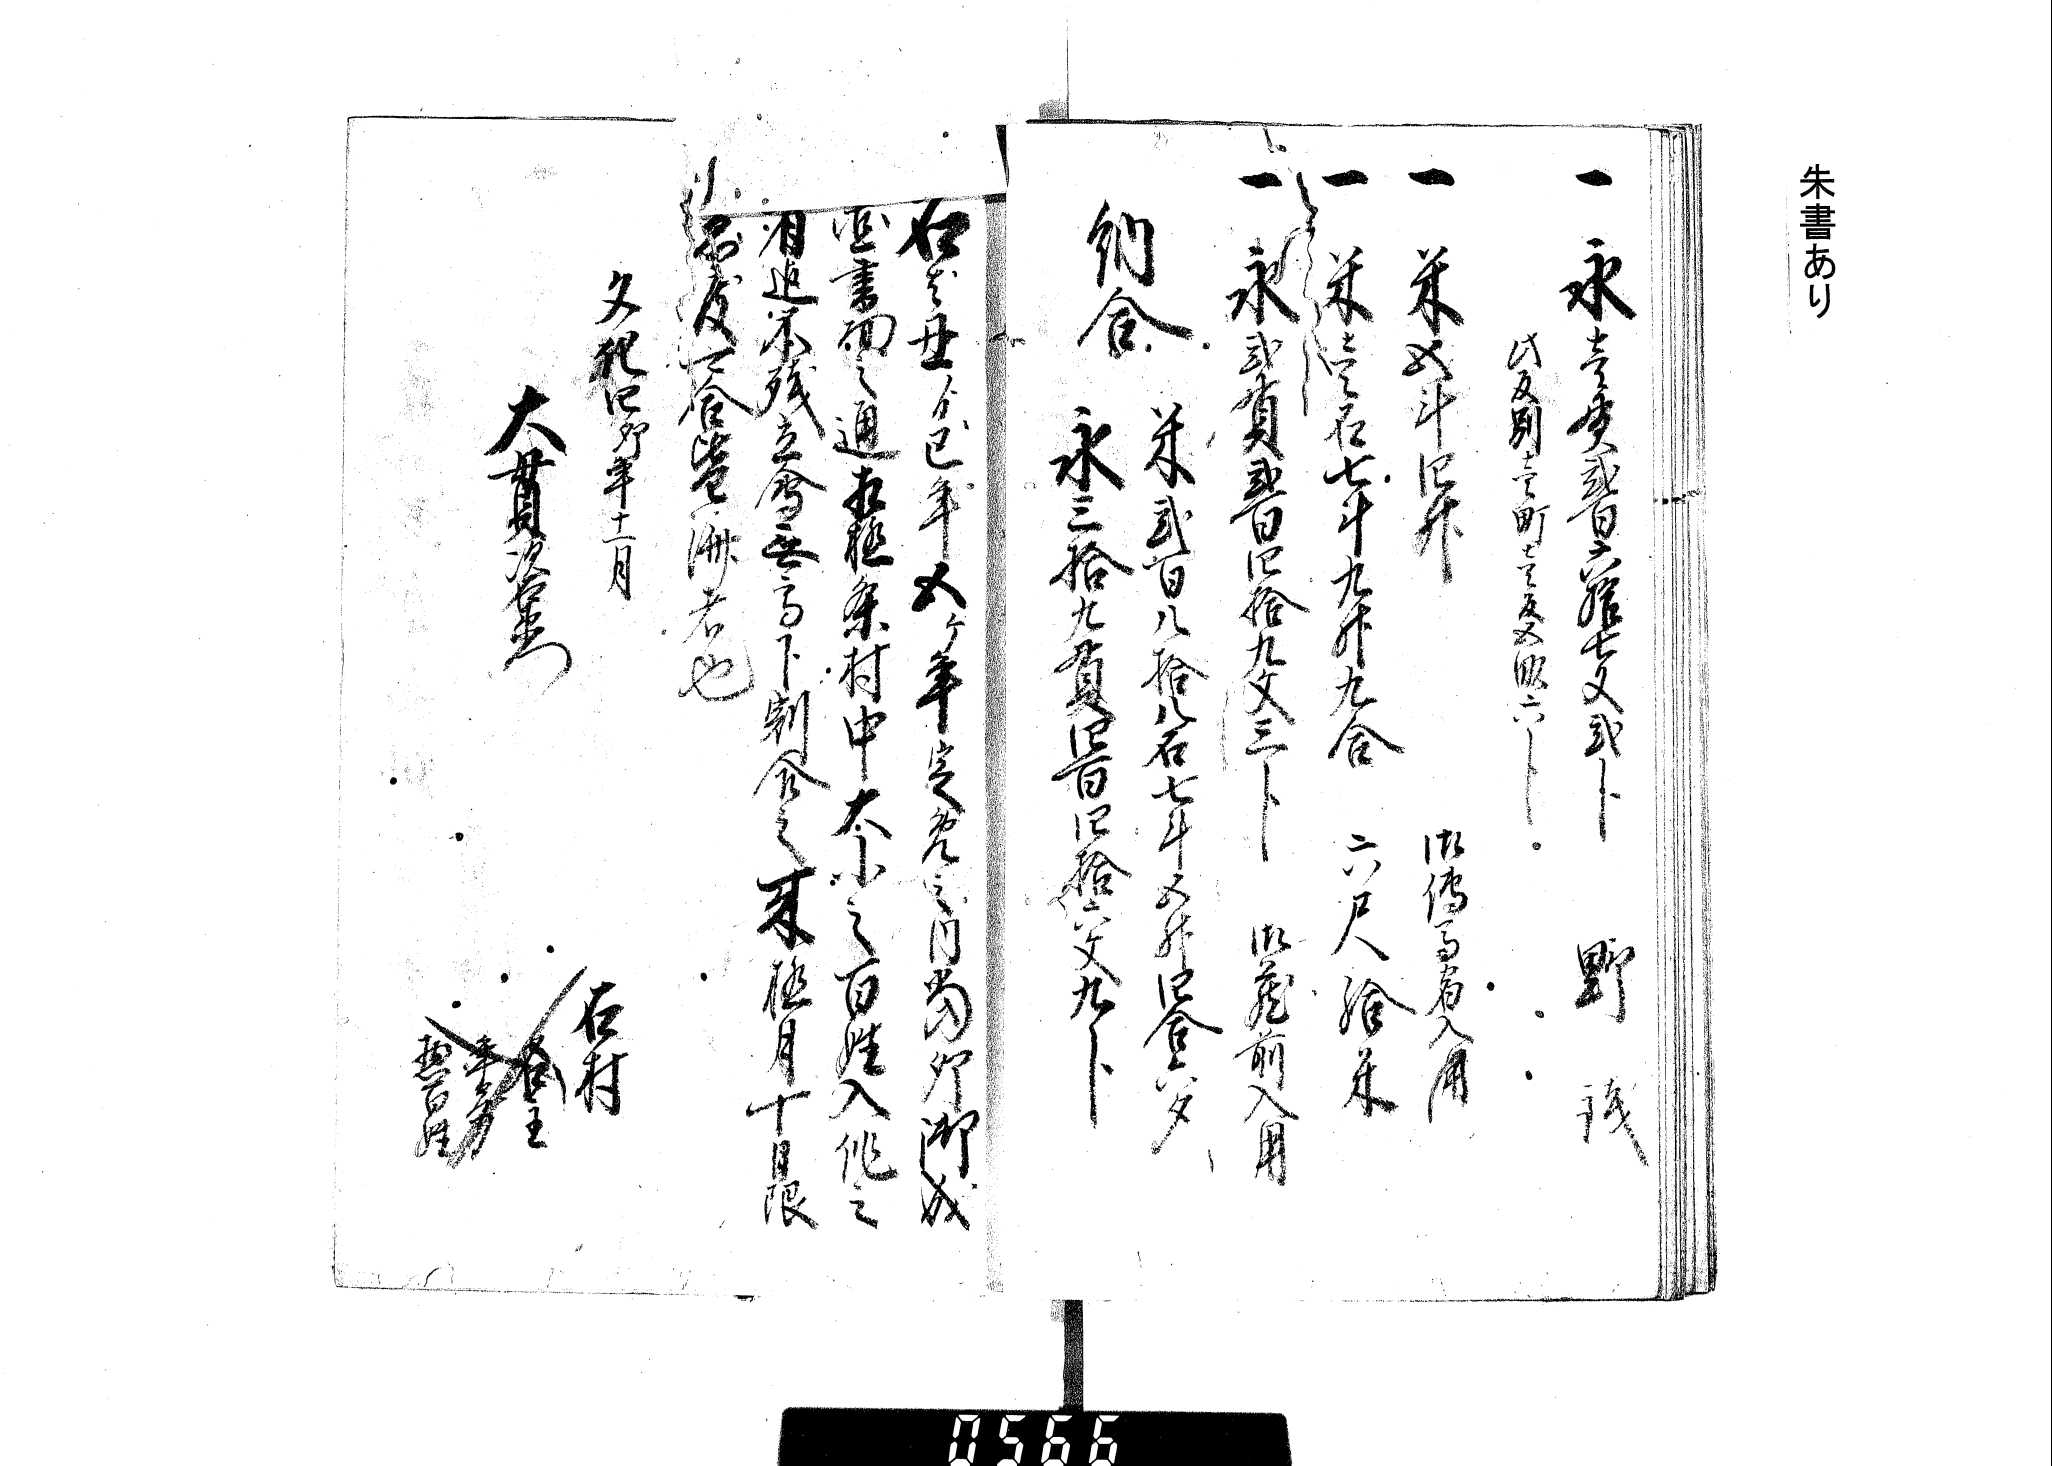 朱書あり
一 永壱貫弐百六拾七文弐分 野銭
此反別壱町壱反五畝六分
一 米五斗四升 御伝馬宿入用
一 米壱石七斗九升九合 六尺給米
一 永弐貫弐百四拾九文三分 御蔵前入用
納合 米弐百八拾八石七斗五升四合六夕
永三拾九貫四百四拾六文九分
右者丑ゟ巳年迄五ヶ年定免之内当卯御成
箇書面之通相極条村中大小之百姓入作之
者迄不残立会無高下割合之来極月十日限
急度可令皆済者也
文化四卯年十一月
大貫次右衛門
右村
名主
年寄
惣百姓
0566